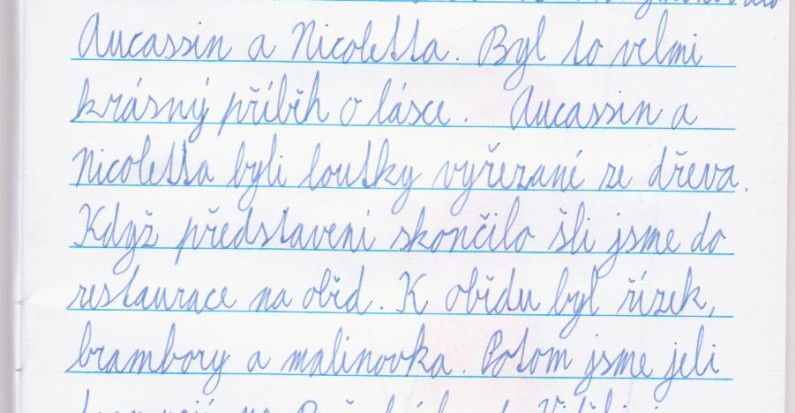 Aucassin a Nicoletta. Byl to velmi
krásný příběh o lásce. Aucassin a
Nicoletta byli loutky vyřezaní ze dřeva.
Když představení skončilo šli jsme do
restaurace na oběd. K obědu byl řízek,
brambory a malinovka. Potom jsme jeli